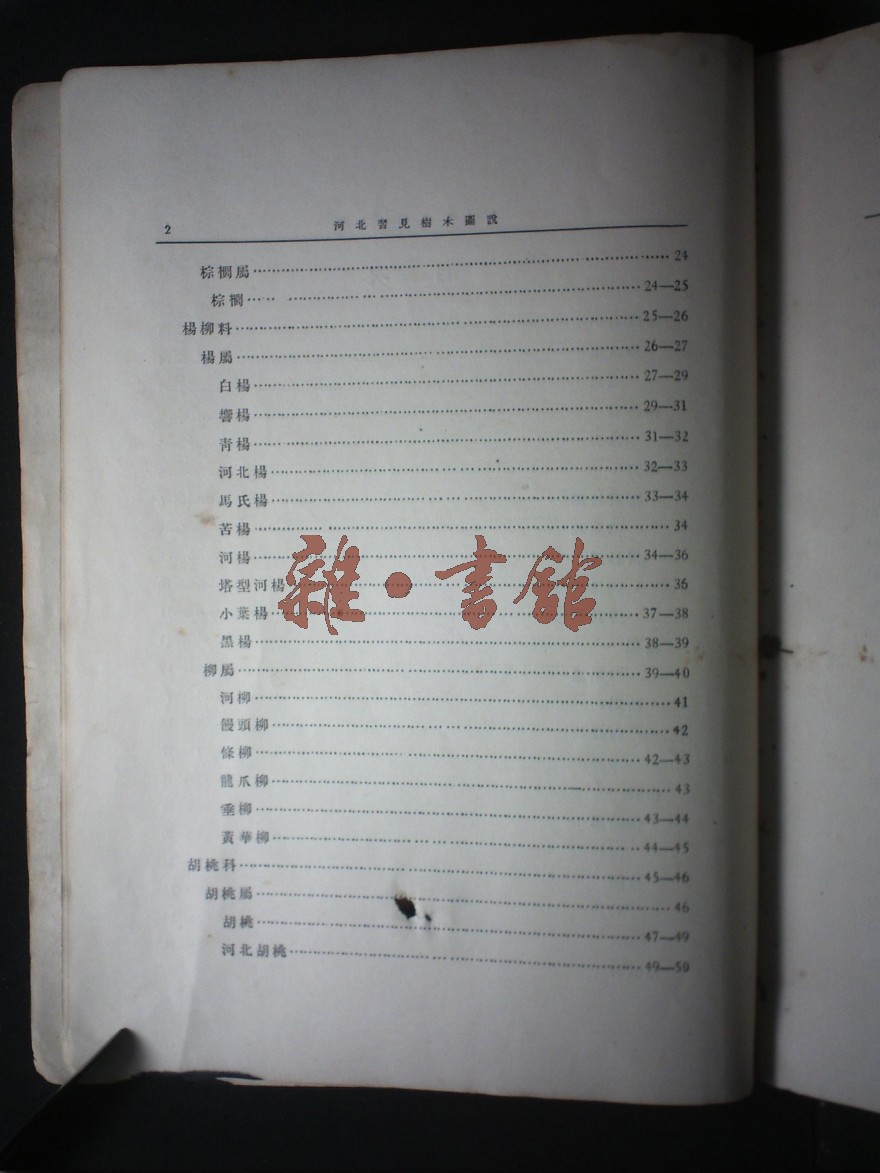 2
河北習見樹木圖說
棕櫚屬 24
棕櫚 24—25
楊柳料 25—26
楊屬 26—27
白楊 27—29
響楊 29—31
青楊 31—32
河北楊 32—33
馬氏楊 33—34
苦楊 34
河楊 34—36
塔型河楊 36
小葉楊 37—38
黑楊 38—39
柳屬 39—40
河柳 41
饅頭柳 42
條柳 42—43
龍爪柳 43
垂柳 43—44
黃華柳 44—45
胡桃科 45—46
胡桃屬 46
胡桃 47—49
河北胡桃 49—50
雜·書館